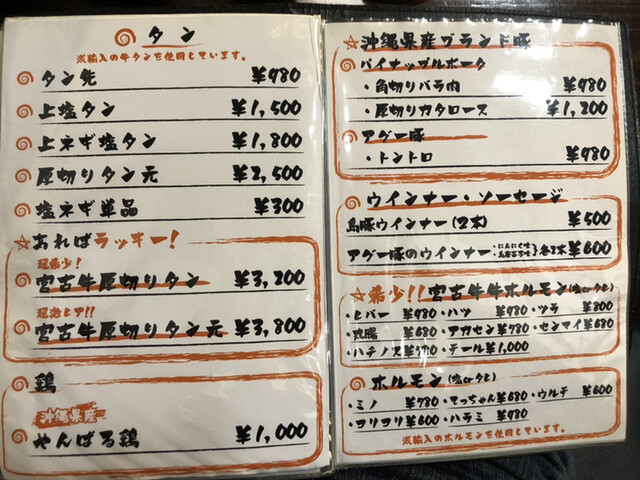 タン
※輸入の牛タンを使用しています。
タン先 ¥980
上塩タン ¥1,500
上ネギ塩タン ¥1,800
厚切りタン元 ¥2,500
塩ネギ単品 ¥300
☆あればラッキー!
超希少!
宮古牛厚切りタン ¥3,200
超激レア!!
宮古牛厚切りタン元 ¥3,800
鶏
沖縄県産
やんばる鶏 ¥1,000
☆沖縄県産ブランド豚
パイナップルポーク
・角切りバラ肉 ¥980
・厚切りカタロース ¥1,200
アグー豚
・トントロ ¥980
ウインナー・ソーセージ
島豚ウインナー(2本) ¥500
アグー豚のウインナー ・にんにく味 ・島唐辛子味 }各2本 ¥600
☆希少!!宮古牛牛ホルモン(塩orタレ)
・レバー ¥980 ・ハツ ¥980 ・ツラ ¥800
¥680 ・アカセン ¥780 ・センマイ ¥680
・ハチノス ・テール ¥1,000
ホルモン(塩orタレ)
・ミノ ¥780 ・てっちゃん ¥680 ・ウルテ ¥600
・コリコリ ¥600 ・ハラミ ¥980
※輸入のホルモンを使用しています。